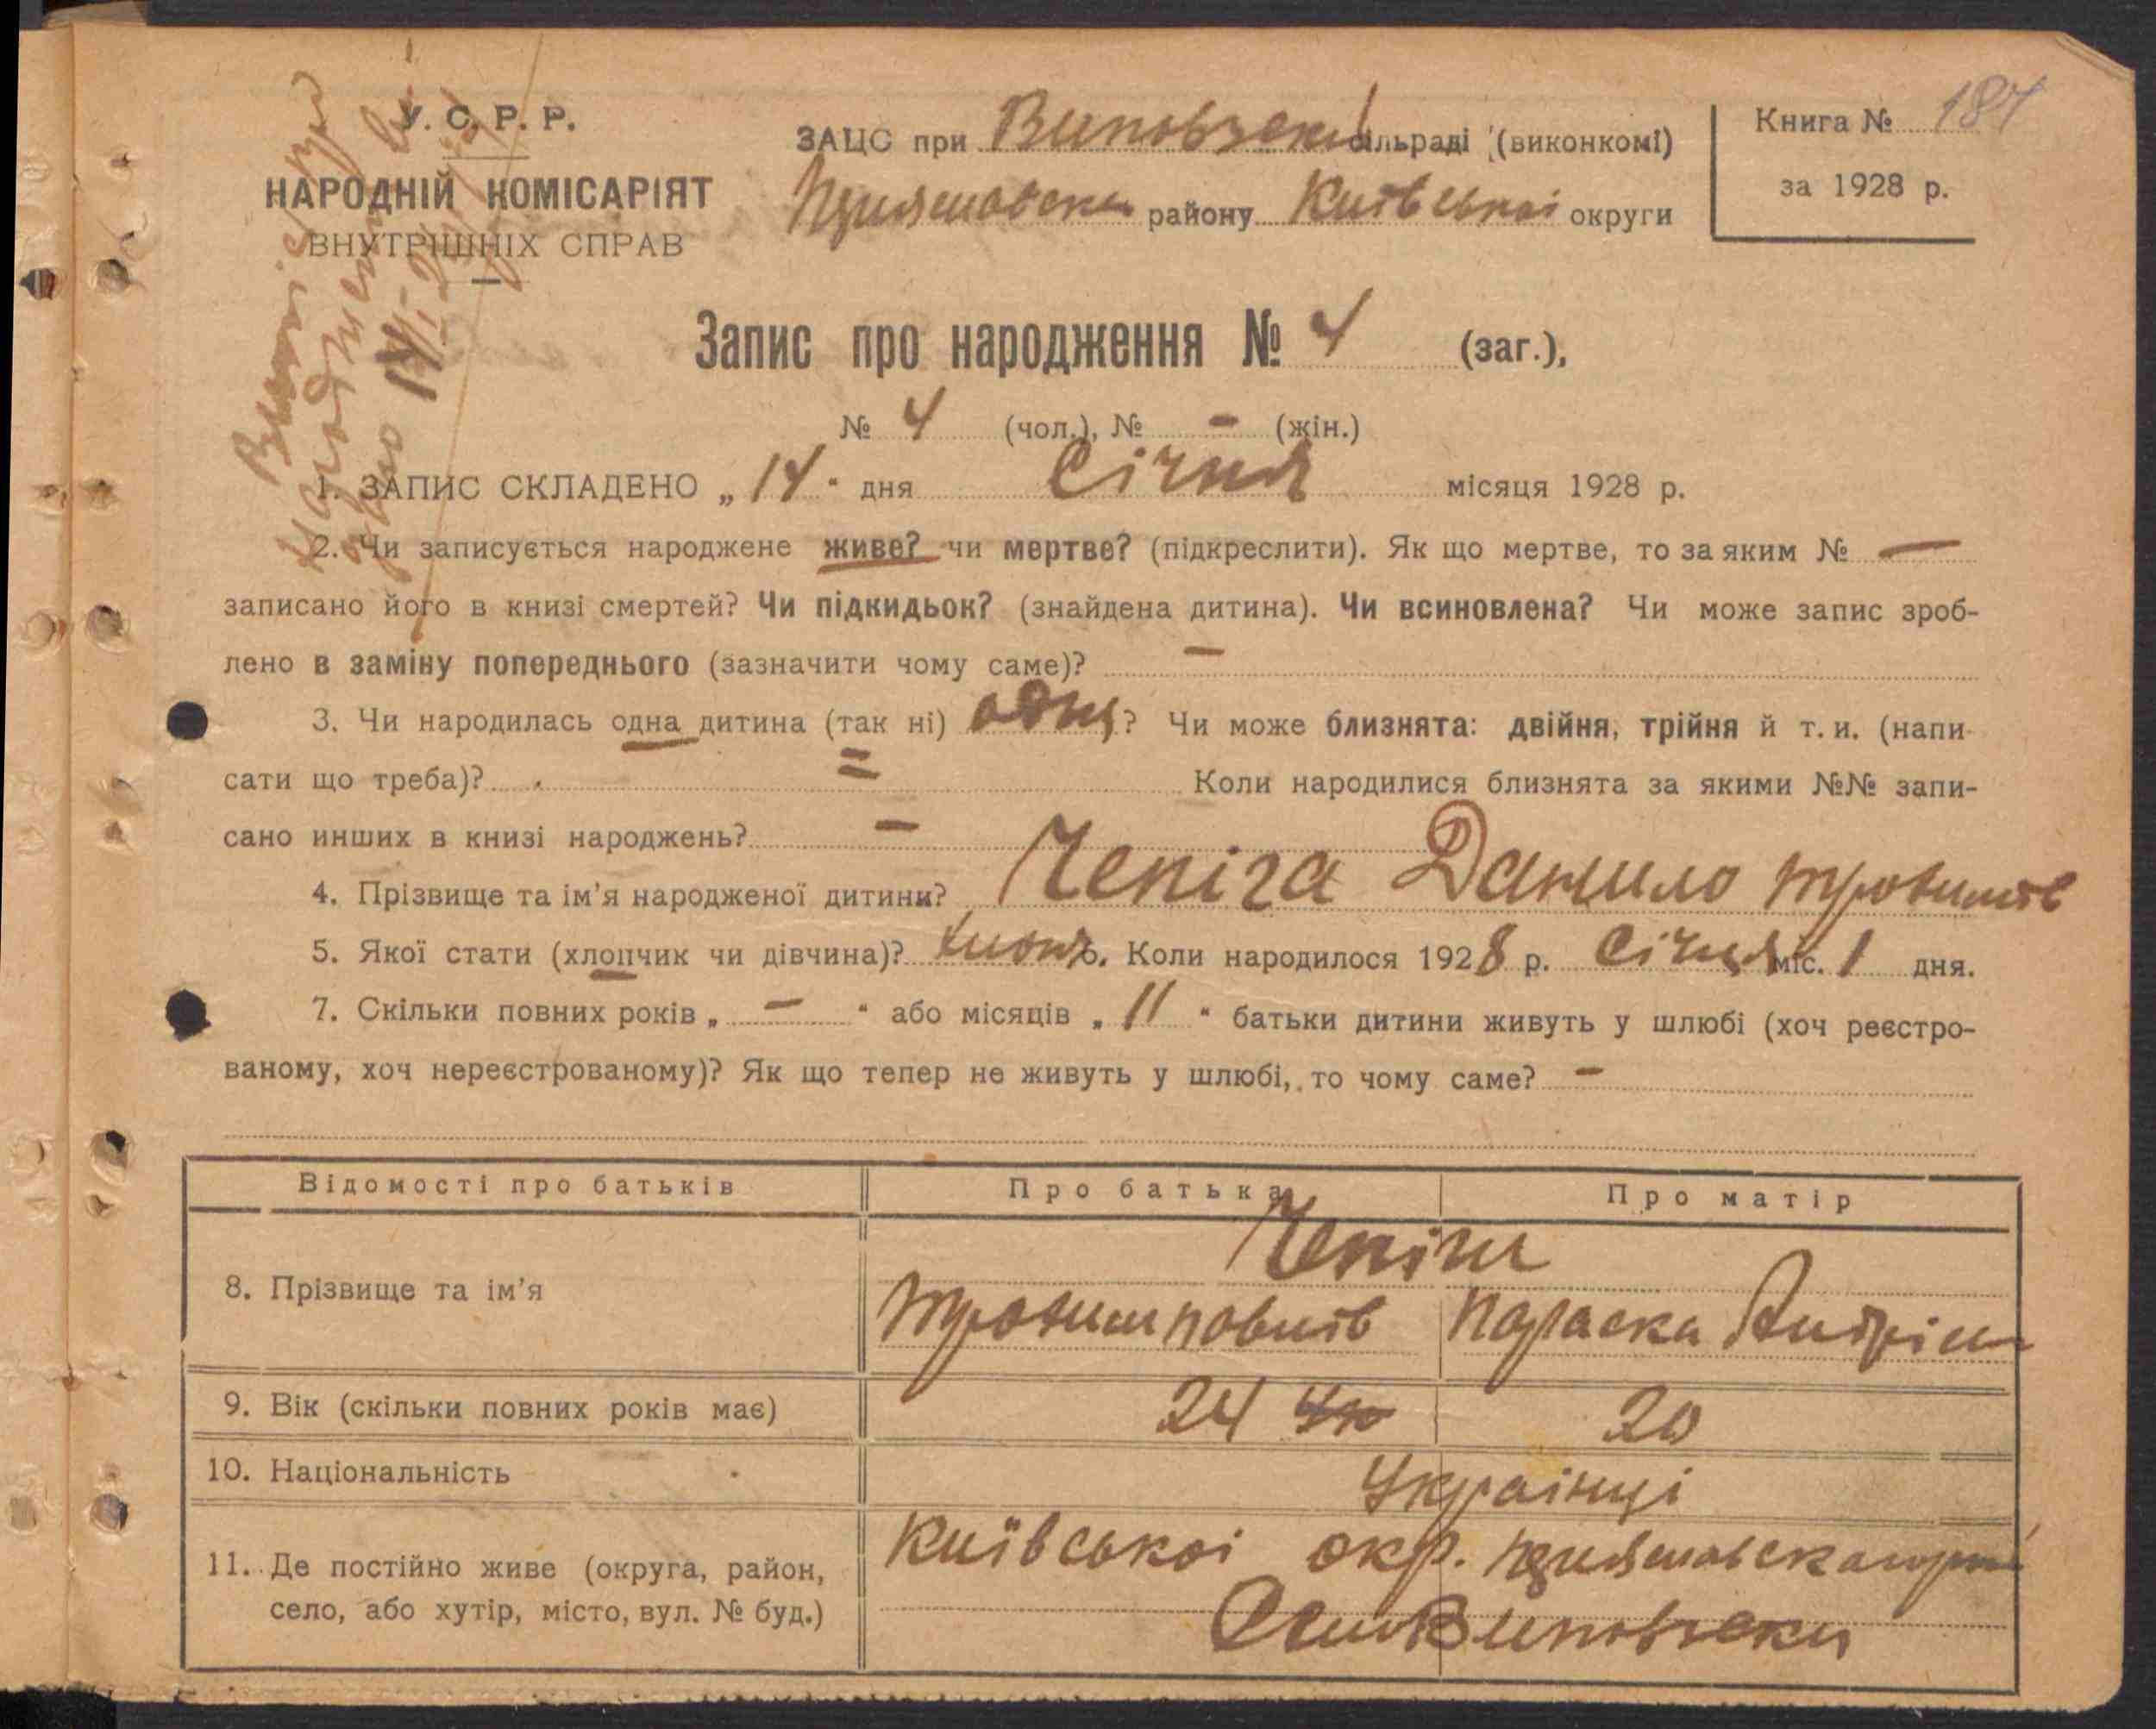 У. С. Р. Р.
НАРОДНІЙ КОМІСАРІЯТ
ВНУТРІШНІХ СПРАВ
ЗАЦС при Виповзскій сільраді (виконкомі)
району Київської округи
Книга № 184
за 1928 р.
Запис про народження № 4 (заг.),
№ 4 (чол.), № - (жін.)
1. ЗАПИС СКЛАДЕНО „14“ дня Січня місяця 1928 р.
2. Чи записується народжене живе? чи мертве? (підкреслити). Як що мертве, то за яким № —
записано його в книзі смертей? Чи підкидьок? (знайдена дитина). Чи всиновлена? Чи може запис зроб-
лено в заміну попереднього (зазначити чому саме)? —
3. Чи народилась одна дитина (так ні) одна? Чи може близнята: двійня, трійня й т. и. (напи-
сати що треба)? = Коли народилися близнята за якими №№ запи-
сано инших в книзі народжень? —
4. Прізвище та ім'я народженої дитини? Чепіга Данило
5. Якої стати (хлопчик чи дівчина)? хлопч. Коли народилося 1928 р. Січня міс. 1 дня.
7. Скільки повних років „ — “ або місяців „ 11 “ батьки дитини живуть у шлюбі (хоч реєстро-
ваному, хоч нереєстрованому)? Як що тепер не живуть у шлюбі, то чому саме? —
Відомості про батьків Про батька Про матір
Чепіги
8. Прізвище та ім'я Параска
9. Вік (скільки повних років має) 24 20
10. Національність Українці
11. Де постійно живе (округа, район, Київської окр.
село, або хутір, місто, вул. № буд.)